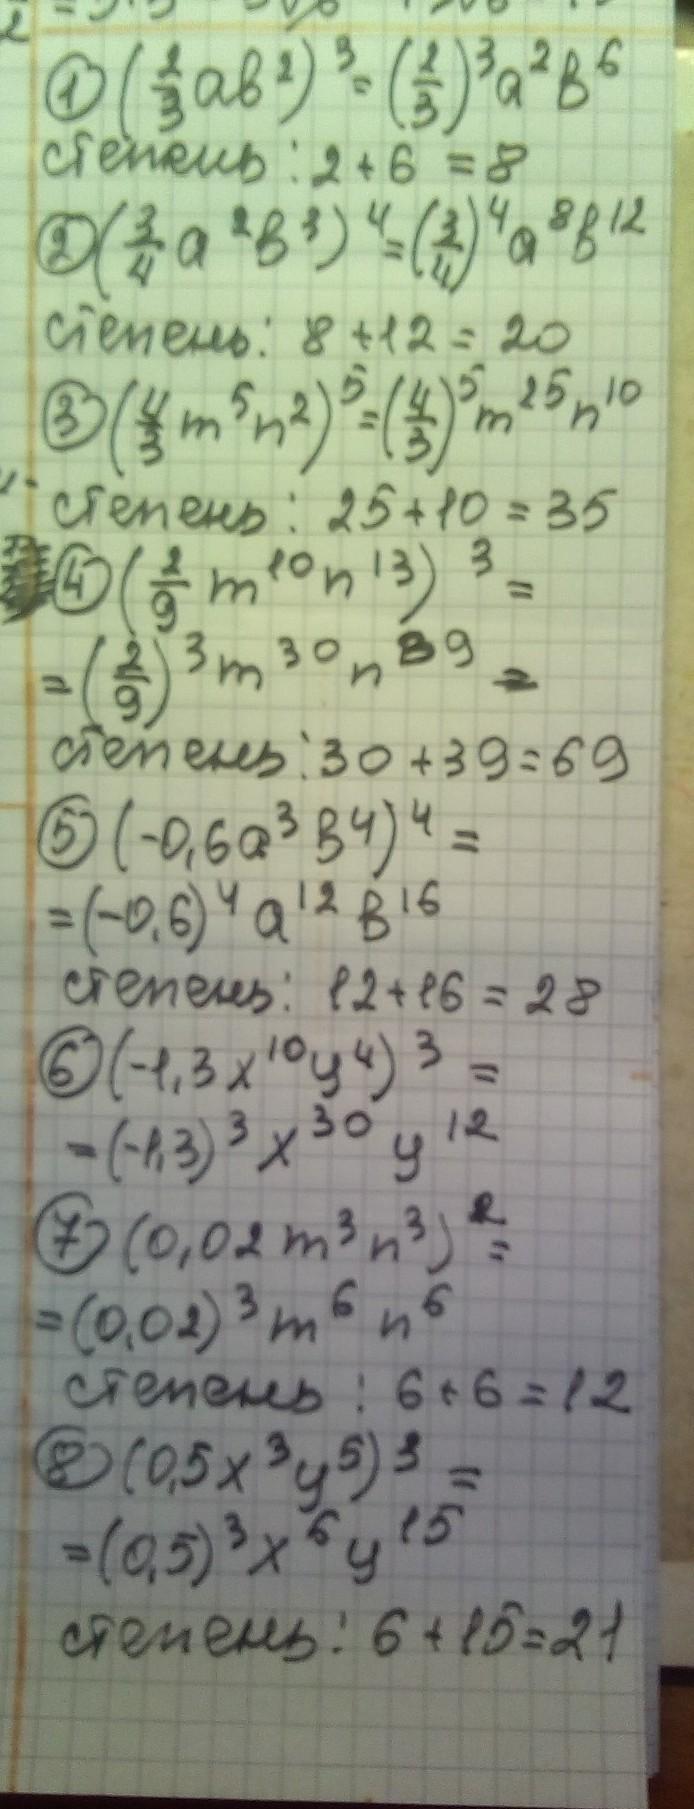 ① (2/3 ab²)³ = (2/3)³a²b⁶
степень: 2+6 = 8
② (3/4 a²b³)⁴ = (3/4)⁴a⁸b¹²
степень: 8+12 = 20
③ (4/3 m⁵n²)⁵ = (4/3)⁵m²⁵n¹⁰
степень: 25+10 = 35
④ (2/9 m¹⁰n¹³)³ =
= (2/9)³m³⁰n³⁹
степень: 30+39=69
⑤ (-0,6a³b⁴)⁴ =
= (-0,6)⁴a¹²b¹⁶
степень: 12+16 = 28
⑥ (-1,3x¹⁰y⁴)³ =
= (-1,3)³x³⁰y¹²
⑦ (0,02m³n³)² =
= (0,02)³m⁶n⁶
степень: 6+6=12
⑧ (0,5x³y⁵)³ =
= (0,5)³x⁶y¹⁵
степень: 6+15=21